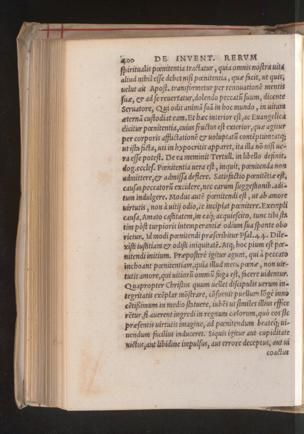 400 DE INVENT. RERUM
spiritualis pœnitentia tractatur, quia omnis nostra vita
aliud nihil esse debet nisi pœnitentia, quæ facit, ut quis,
uelut ait Apost. transformetur per renouationē mentis
suæ, & ad se reuertatur, dolendo peccati suum, dicente
Seruatore, Qui odit animā suā in hoc mundo, in uitam
æternā custodit eam. Et hæc interior est, ac Euangelica
dicitur pœnitentia, cuius fructus est exterior, quæ agitur
per corporis afflictationē & uoluptatū contēptum: atq;
ut ista facta, uti in hypocritis apparet, ita illa nō nisi ue-
ra esse potest. De ea meminit Tertull. in libello definit.
dog. eccles. Pœnitentia uera est, inquit, pœnitenda non
admittere, & admissa deflere. Satisfactio pœnitētiæ est,
causas peccatorū excidere, nec earum suggestionib. adi-
tum indulgere. Modus autē pœnitendi est, ut ab amore
uirtutis, non à uitij odio, te incipiat pœnitere. Exempli
causa, Amato castitatem, in eaq; acquiescito, tunc tibi sta
tim pòst turpioris intemperantiæ odium sua sponte obo
rietur. Id modi pœnitendi præscribitur Psal. 44. Dile-
xisti iustitiam & odisti iniquitatē. Atq; hoc pium est pœ-
nitendi initium. Præposterè igitur agunt, qui à peccato
inchoant pœnitentiam, quia illud metu pœnæ, non uir-
tutis amore, quā uitiorū omniū fuga est, facere uidentur.
Quapropter Christus quum uellet discipulis uerum in-
tegritatis exēplar mōstrare, cōsurgit puellum lōgè inno
cētissimum in medio statuere, iubēt ut similes illius effice
rētur, si auerent ingredi in regnum cœlorum, quò eos sic
præsentis uirtutis imagine, ad pœnitendum beateq; ui-
uendum facilius induceret. Siquis igitur aut cupiditate
uictus, aut libidine impulsus, aut errore deceptus, aut ui
coactus